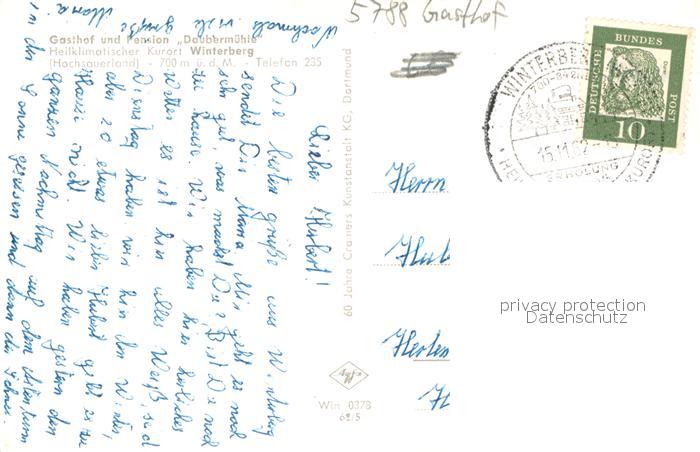 5788 Gasthof
Gasthof und Pension „Daubermühle"
Heilklimatischer Kurort Winterberg
(Hochsauerland) - 700 m ü. d. M. - Telefon 235
Nochmals viele Grüße Mama.
Lieber Hubert!
Die besten Grüße aus Winterberg
sendet Dir Mama. Mir geht es noch
sehr gut, was machst Du? Bist Du noch
zu Hause. Wir haben hier herrliches
Wetter es ist hier alles Weiß, seid
Dienstag haben wir hier den Winter,
aber so etwas lieber Hubert gibt es zu
Hause nicht. Wir haben gestern den
ganzen Nachmittag auf dem
in der Sonne gesessen und dann die Schnee
60 Jahre Cramers Kunstanstalt KG, Dortmund
Win 0378
62/5
DEUTSCHE BUNDESPOST
Dürer
10
WINTERBERG
700-842
15.11.62
ERHOLUNG
Herrn
Hub
Herten
privacy protection
Datenschutz